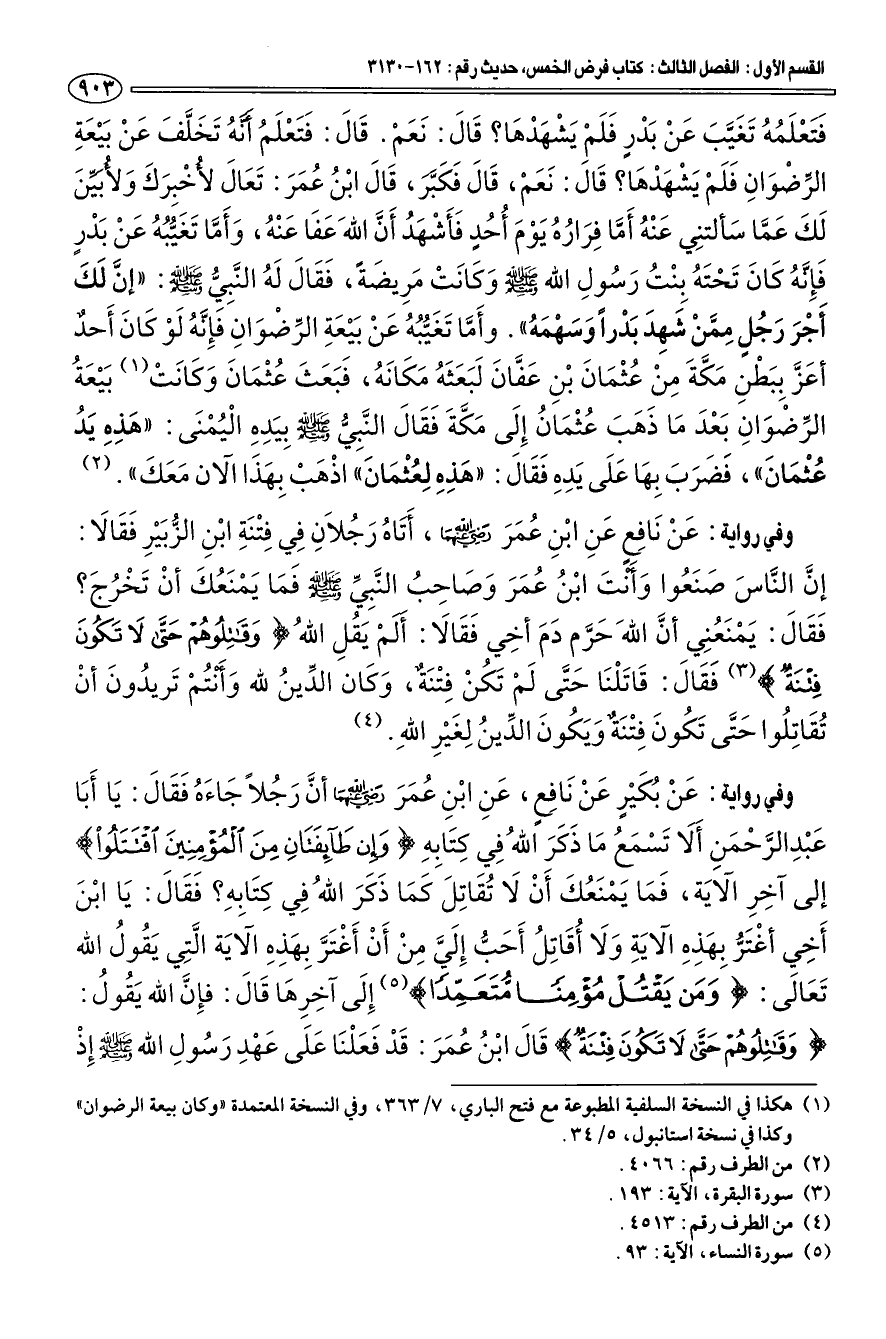 القسم الأول: الفصل الثالث: كتاب فرض الخمس، حديث رقم: ١٦٢-٣١٣٠
٩٠٣
فَتَعْلَمُهُ تَغَيَّبَ عَنْ بَدْرٍ فَلَمْ يَشْهَدْهَا؟ قَالَ: نَعَمْ. قَالَ: فَتَعْلَمُ أَنَّهُ تَخَلَّفَ عَنْ بَيْعَةِ
الرِّضْوَانِ فَلَمْ يَشْهَدْهَا؟ قَالَ: نَعَمْ، قَالَ فَكَبَّرَ، قَالَ ابْنُ عُمَرَ: تَعَالَ لأُخْبِرَكَ وَلأُبَيِّنَ
لَكَ عَمَّا سَألتنِي عَنْهُ أَمَّا فِرَارُهُ يَوْمَ أُحُدٍ فَأَشْهَدُ أَنَّ اللهَ عَفَا عَنْهُ، وَأَمَّا تَغَيُّبُهُ عَنْ بَدْرٍ
فَإِنَّهُ كَانَ تَحْتَهُ بِنْتُ رَسُولِ اللهِ ﷺ وَكَانَتْ مَرِيضَةً، فَقَالَ لَهُ النَّبِيُّ ﷺ: «إنَّ لَكَ
أَجْرَ رَجُلٍ مِمَّنْ شَهِدَ بَدْراً وَسَهْمَهُ». وأَمَّا تَغَيُّبُهُ عَنْ بَيْعَةِ الرِّضْوَانِ فَإِنَّهُ لَوْ كَانَ أَحدٌ
أعَزَّ بِبَطْنِ مَكَّةَ مِنْ عُثْمَانَ بْنِ عَفَّانَ لَبَعَثَهُ مَكَانَهُ، فَبَعَثَ عُثْمَانَ وَكَانَتْ(١) بَيْعَةُ
الرِّضْوَانِ بَعْدَ مَا ذَهَبَ عُثْمَانُ إِلَى مَكَّةَ فَقَالَ النَّبِيُّ ﷺ بِيَدِهِ الْيُمْنَى: «هَذِهِ يَدُ
عُثْمَانَ»، فَضَرَبَ بِهَا عَلَى يَدِهِ فَقَالَ: «هَذِهِ لِعُثْمَانَ» اذْهَبْ بِهَذَا الآن مَعَكَ». (٢)
وفي رواية: عَنْ نَافِعٍ عَنِ ابْنِ عُمَرَ رضي الله عنهما، أَتَاهُ رَجُلاَنِ فِي فِتْنَةِ ابْنِ الزُّبَيْرِ فَقَالَا:
إنَّ النَّاسَ صَنَعُوا وَأَنْتَ ابْنُ عُمَرَ وَصَاحِبُ النَّبِيِّ ﷺ فَمَا يَمْنَعُكَ أنْ تَخْرُجَ؟
فَقَالَ: يَمْنَعُنِي أنَّ اللهَ حَرَّم دَمَ أخِي فَقَالَا: أَلَمْ يَقُلِ اللهُ ﴿ وَقَٰتِلُوهُمْ حَتَّىٰ لَا تَكُونَ
فِتْنَةٌ ﴾(٣) فَقَالَ: قَاتَلْنَا حَتَّى لَمْ تَكُنْ فِتْنَةٌ، وَكَان الدِّينُ لله وَأَنْتُمْ تَرِيدُون أنْ
تُقَاتِلُوا حَتَّى تَكُونَ فِتْنَةٌ وَيَكُونَ الدِّينُ لِغَيْرِ اللهِ. (٤)
وفي رواية: عَنْ بُكَيْرٍ عَنْ نَافِعٍ، عَنِ ابْنِ عُمَرَ رضي الله عنهما أنَّ رَجُلاً جَاءَهُ فَقَالَ: يَا أَبَا
عَبْدِالرَّحْمَنِ أَلَا تَسْمَعُ مَا ذَكَرَ اللهُ فِي كِتَابِهِ ﴿ وَإِن طَآئِفَتَانِ مِنَ ٱلْمُؤْمِنِينَ ٱقْتَتَلُواْ ﴾
إلى آخِرِ الْآيَة، فَمَا يَمْنَعُكَ أَنْ لَا تُقَاتِلَ كَمَا ذَكَرَ اللهُ فِي كِتَابِهِ؟ فَقَالَ: يَا ابْنَ
أَخِي أغْتَرُّ بِهَذِهِ الْآيَةِ وَلَا أُقَاتِلُ أحَبُّ إِلَيَّ مِنْ أَنْ أَغْتَرَّ بِهَذِهِ الْآيَة الَّتِي يَقُولُ الله
تَعَالَى: ﴿ وَمَن يَقْتُلْ مُؤْمِنًا مُّتَعَمِّدًا ﴾(٥) إِلَى آخِرِهَا قَالَ: فإنَّ الله يَقُولُ:
﴿ وَقَٰتِلُوهُمْ حَتَّىٰ لَا تَكُونَ فِتْنَةٌ ﴾ قَالَ ابْنُ عُمَرَ: قَدْ فَعَلْنَا عَلَى عَهْدِ رَسُولِ الله ﷺ إِذْ
(١) هكذا في النسخة السلفية المطبوعة مع فتح الباري، ٧/ ٣٦٣، وفي النسخة المعتمدة «وكان بيعة الرضوان»
وكذا في نسخة استانبول، ٥/ ٣٤.
(٢) من الطرف رقم: ٤٠٦٦.
(٣) سورة البقرة، الآية: ١٩٣.
(٤) من الطرف رقم: ٤٥١٣.
(٥) سورة النساء، الآية: ٩٣.